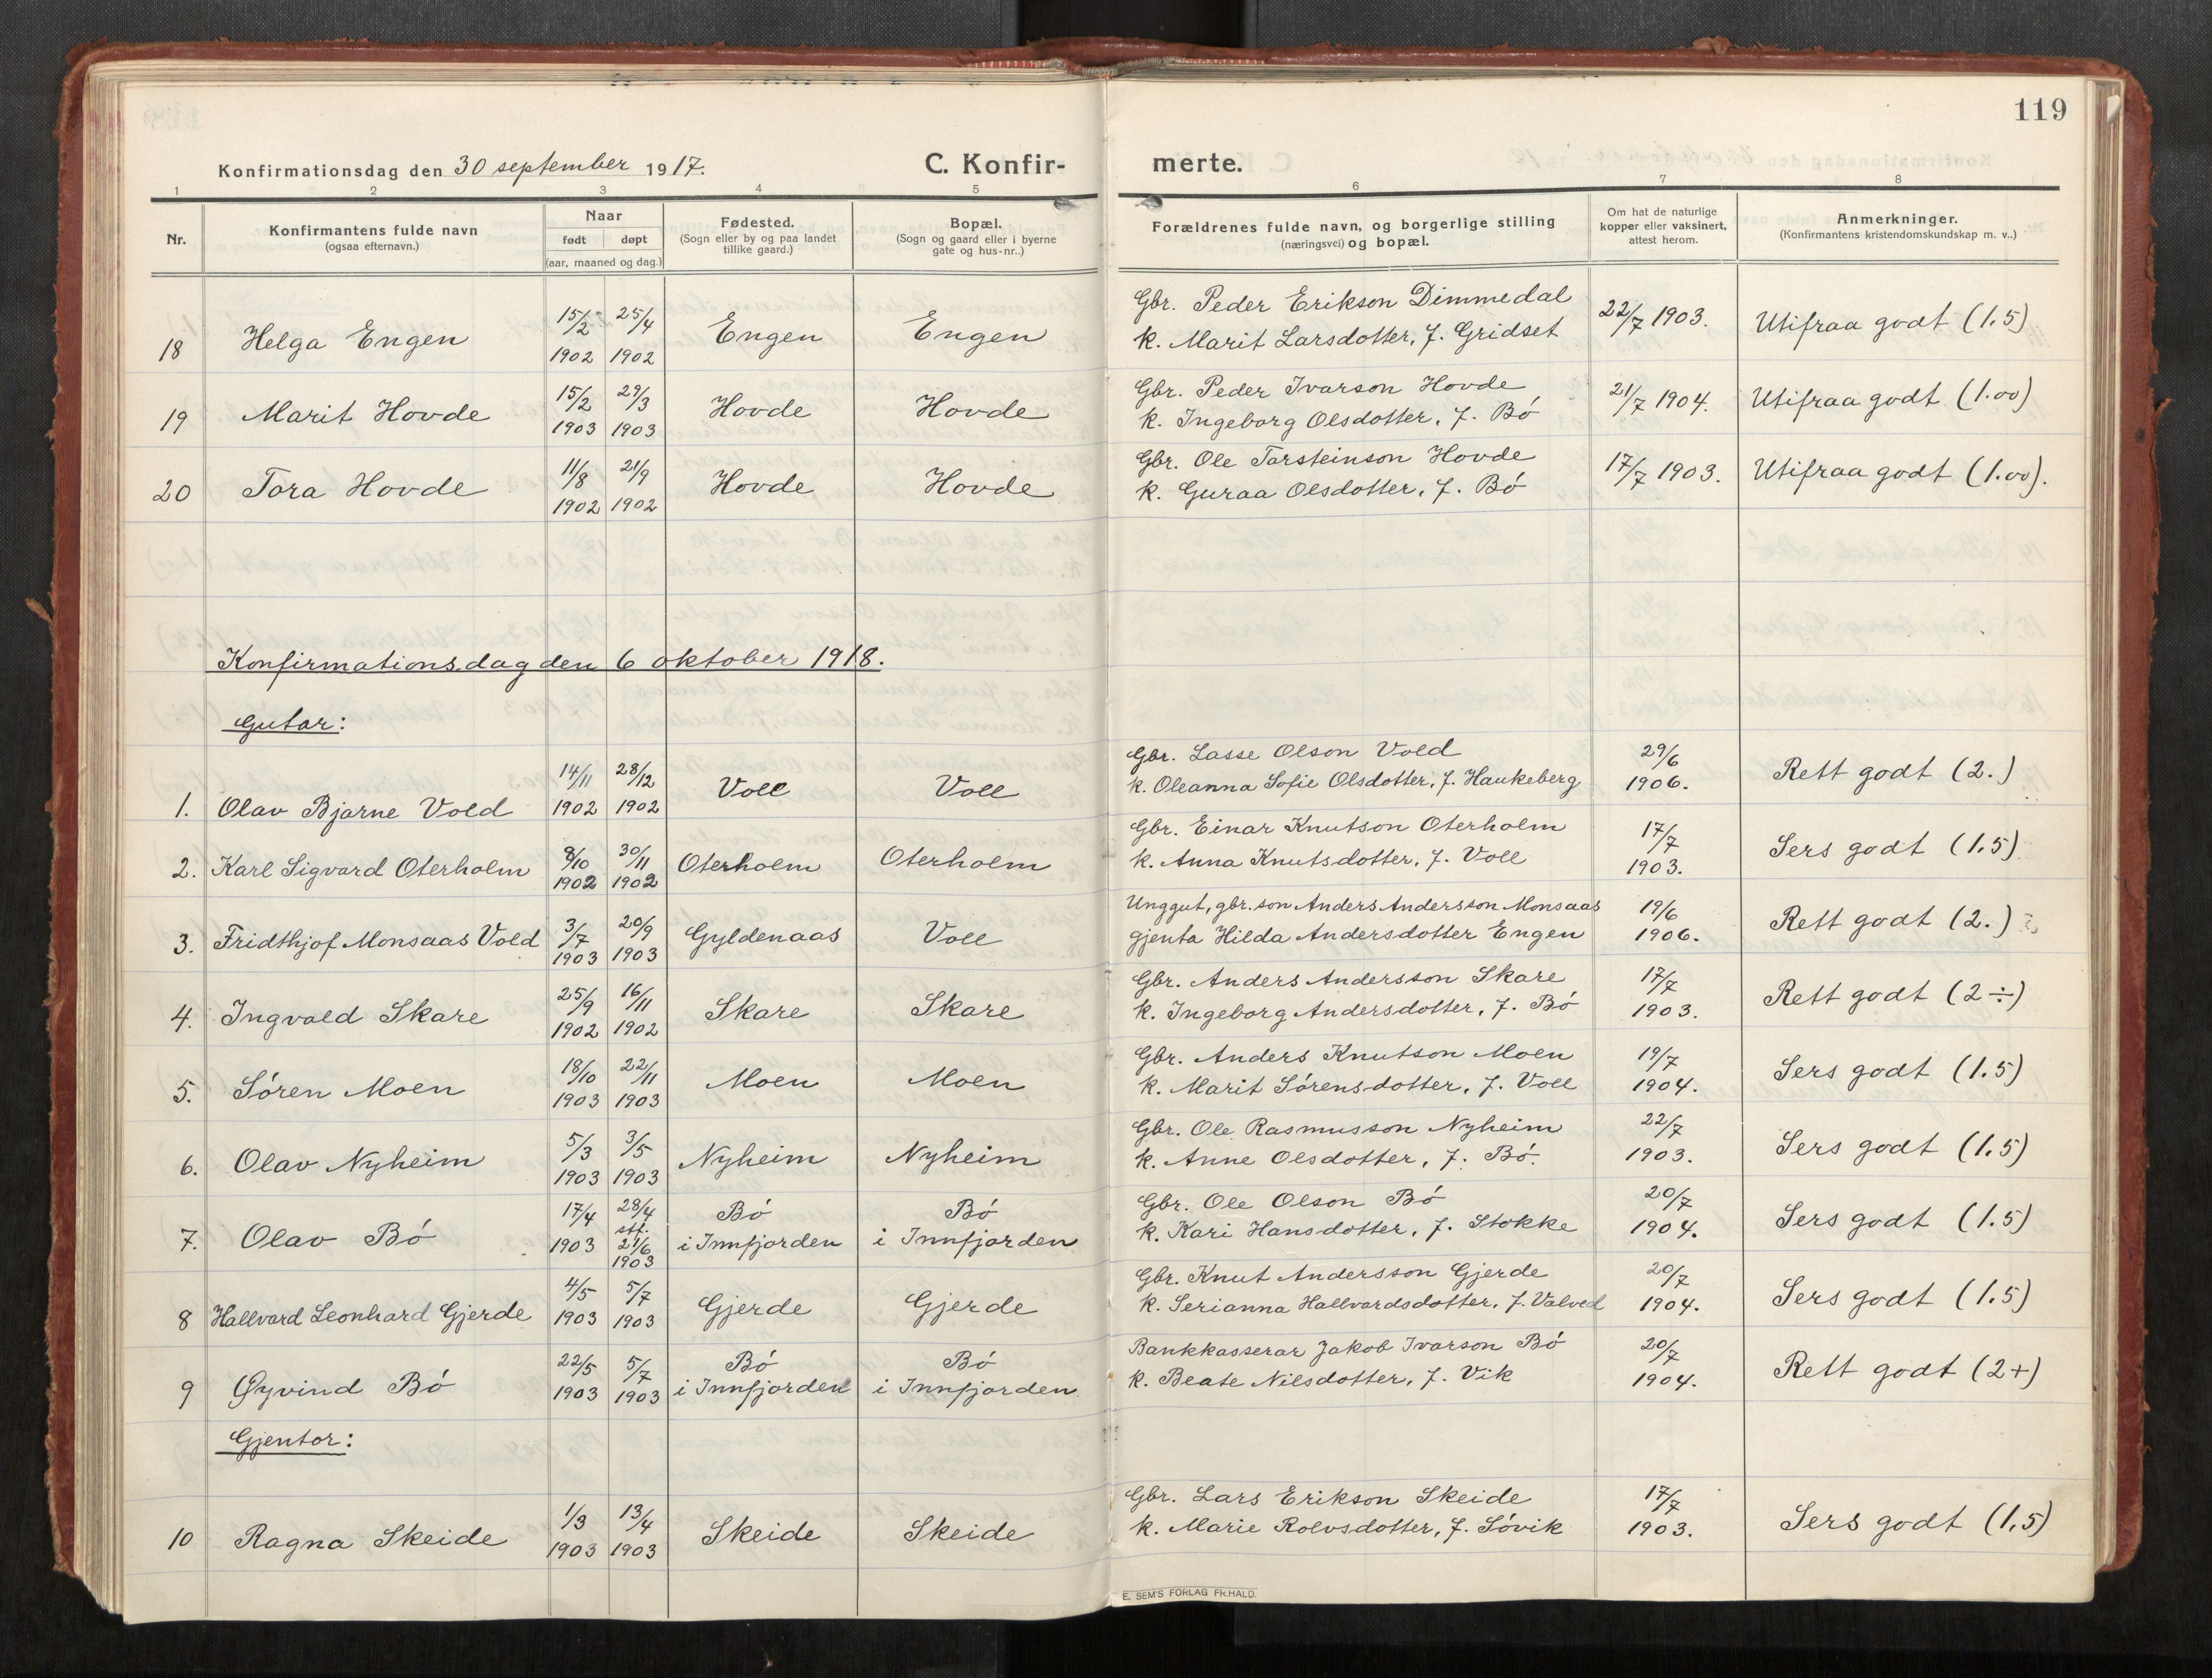 119
Konfirmationsdag den 30 september 1917.
C. Konfir-
merte.
1 2 3 4 5 6 7 8
Nr.
Konfirmantens fulde navn
(ogsaa efternavn.)
Naar
født døpt
(aar, maaned og dag.)
Fødested.
(Sogn eller by og paa landet
tillike gaard.)
Bopæl.
(Sogn og gaard eller i byerne
gate og hus-nr..)
Forældrenes fulde navn, og borgerlige stilling
(næringsvei) og bopæl.
Om hat de naturlige
kopper eller vaksinert,
attest herom.
Anmerkninger.
(Konfirmantens kristendomskundskap m. v..)
18 Helga Engen 15/2 1902 25/4 1902 Engen Engen
Gbr. Peder Erikson Dimmedal
k. Marit Larsdotter, f. Gridset
22/7 1903. Utifraa godt (1.5)
19 Marit Hovde 15/2 1903 29/3 1903 Hovde Hovde
Gbr. Peder Ivarson Hovde
k. Ingeborg Olsdotter, f. Bó
21/7 1904. Utifraa godt (1.00)
20 Tora Hovde 11/8 1902 21/9 1902 Hovde Hovde
Gbr. Ole Torsteinson Hovde
k. Guraa Olsdotter, f. Bó
17/7 1903. Utifraa godt (1.00).
Konfirmationsdag den 6 oktober 1918.
Gutar:
1. Olav Bjarne Vold 14/11 1902 28/12 1902 Voll Voll
Gbr. Lasse Olson Vold
k. Oleanna Sofie Olsdotter, f. Haukeberg
29/6 1906. Rett godt (2.)
2. Karl Sigvard Oterholm 8/10 1902 30/11 1902 Oterholm Oterholm
Gbr. Einar Knutson Oterholm
k. Anna Knutsdotter, f. Voll
17/7 1903. Sers godt (1.5)
3. Fridthjof Monsaas Vold 3/7 1903 20/9 1903 Gyldenaas Voll
Unggut, gbr.son Anders Andersson Monsaas
gjenta Hilda Andersdotter Engen
19/6 1906. Rett godt (2.)
4. Ingvald Skare 25/9 1902 16/11 1902 Skare Skare
Gbr. Anders Andersson Skare
k. Ingeborg Andersdotter, f. Bó
17/7 1903. Rett godt (2÷)
5. Sóren Moen 18/10 1903 22/11 1903 Moen Moen
Gbr. Anders Knutson Moen
k. Marit Sórensdotter, f. Voll
19/7 1904. Sers godt (1.5)
6. Olav Nyheim 5/3 1903 3/5 1903 Nyheim Nyheim
Gbr. Ole Rasmusson Nyheim
k. Anne Olsdotter, f. Bó.
22/7 1903. Sers godt (1.5)
7. Olav Bó 17/4 1903 28/4 stf. 21/6 1903 Bó i Innfjorden Bó i Innfjorden
Gbr. Ole Olson Bó
k. Kari Hansdotter, f. Stokke
20/7 1904. Sers godt (1.5)
8 Hallvard Leonhard Gjerde 4/5 1903 5/7 1903 Gjerde Gjerde
Gbr. Knut Andersson Gjerde
k. Serianna Hallvardsdotter, f. Valved
20/7 1904. Sers godt (1.5)
9 Øyvind Bó 22/5 1903 5/7 1903 Bó i Innfjorden Bó i Innfjorden
Bankkasserar Jakob Ivarson Bó
k. Beate Nilsdotter, f. Vik
20/7 1904. Rett godt (2+)
Gjentor:
10 Ragna Skeide 1/3 1903 13/4 1903 Skeide Skeide
Gbr. Lars Erikson Skeide
k. Marie Rolvsdotter, f. Sóvik
17/7 1903. Sers godt (1,5)
E. SEM'S FORLAG FR.HALD.